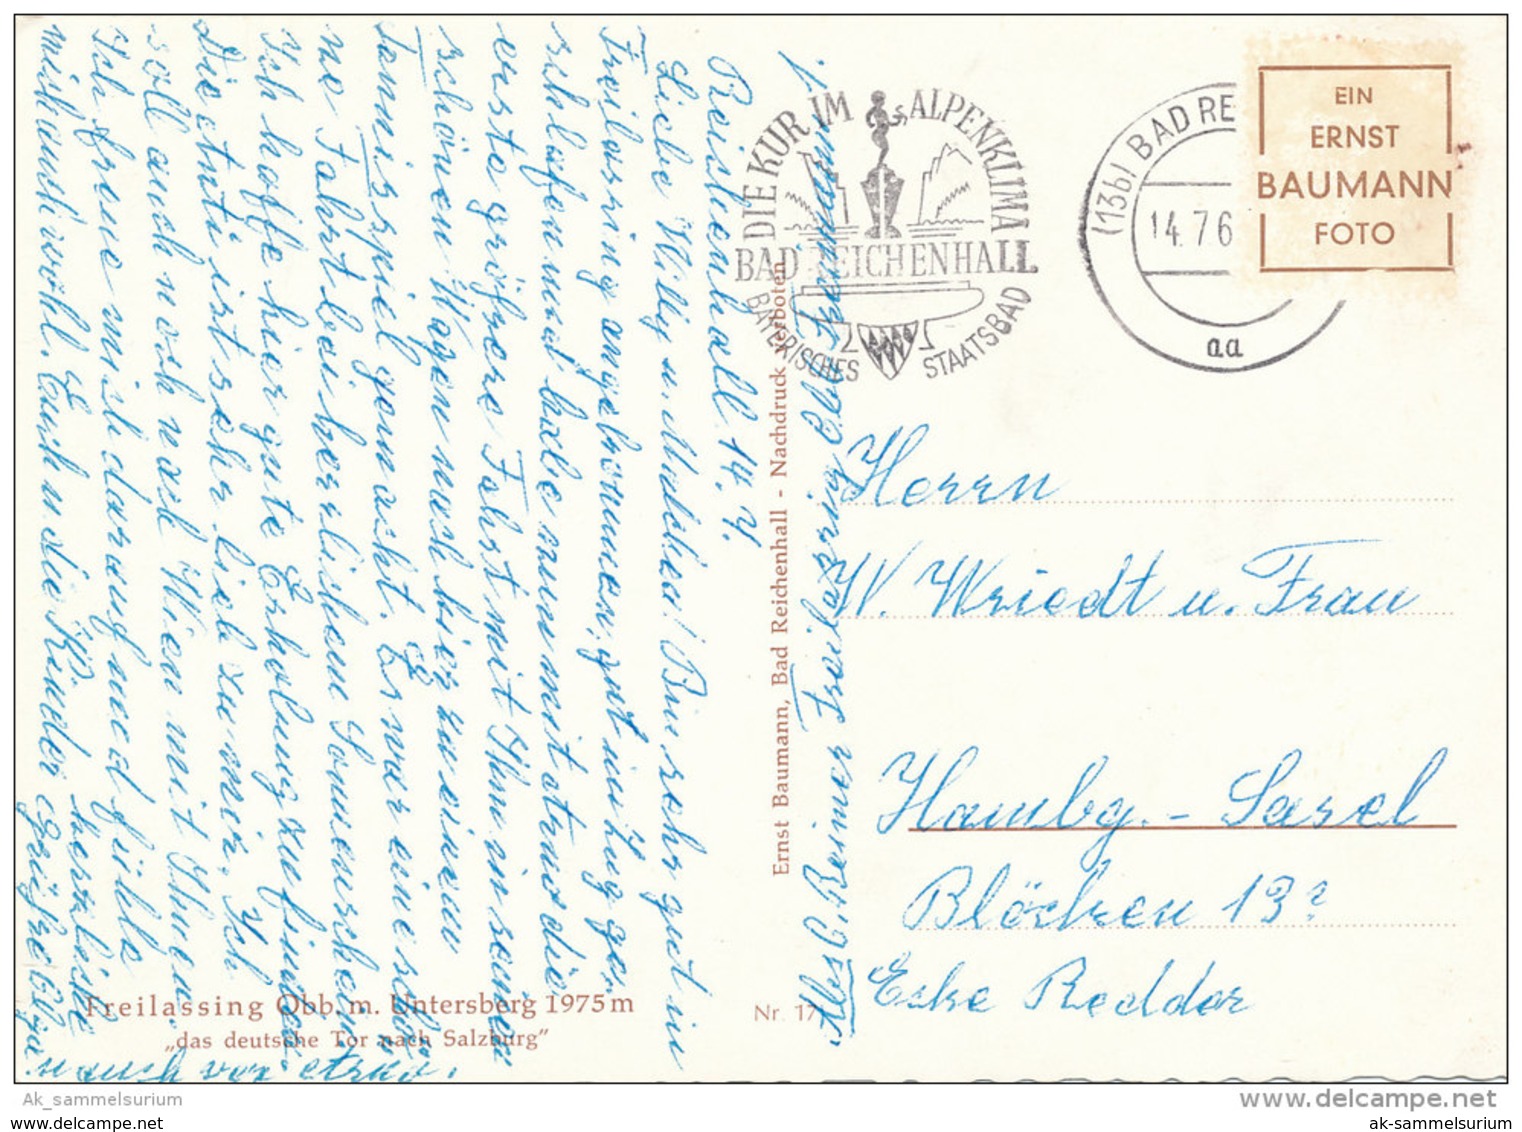 Reichenhall 14.7.
Liebe Willy u. Mädchen! Bin sehr gut in
Freilassing angekommen, gut im Zug ge-
schlafen und habe nun mit Arno die
erste größere Fahrt mit Ihm in seinem
schönen Wagen nach hier zu einem
Tennisspiel gemacht. Es war eine schö-
ne Fahrt bei herrlichem Sonnenschein.
Ich hoffe hier gute Erholung zu finden.
Die Anti ist sehr lieb zu mir. Ich
soll auch noch nach Wien mit Ihnen.
Ich freue mich darauf und fühle
mich auch wohl. Euch u. die Kinder herzliche
Grüße Olga
u. auch von Arno.
Abs. O. Reimer Freilassing
DIE KUR IM ALPENKLIMA
BAD REICHENHALL
BAYERISCHES STAATSBAD
(13b) BAD RE
14.7.6
aa
EIN
ERNST
BAUMANN
FOTO
Ernst Baumann, Bad Reichenhall - Nachdruck verboten
Herrn
W. Wriedt u. Frau
Hambg. - Sasel
Blöcken 13
Ecke Redder
Freilassing Obb. m. Untersberg 1975 m
„das deutsche Tor nach Salzburg"
Nr. 17
Ak_sammelsurium
www.delcampe.net
ak-sammelsurium